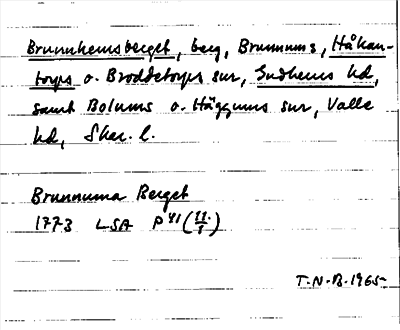 Brunnhemsberget, berg, Brunnums, Håkan-
torps o. Broddetorps sns, Gudhems hd,
samt Bolums o. Häggums sns, Valle
hd, Skar. l.
Brunnuma Berget
1773 LSA P41 (11:1)
T.N.B. 1965